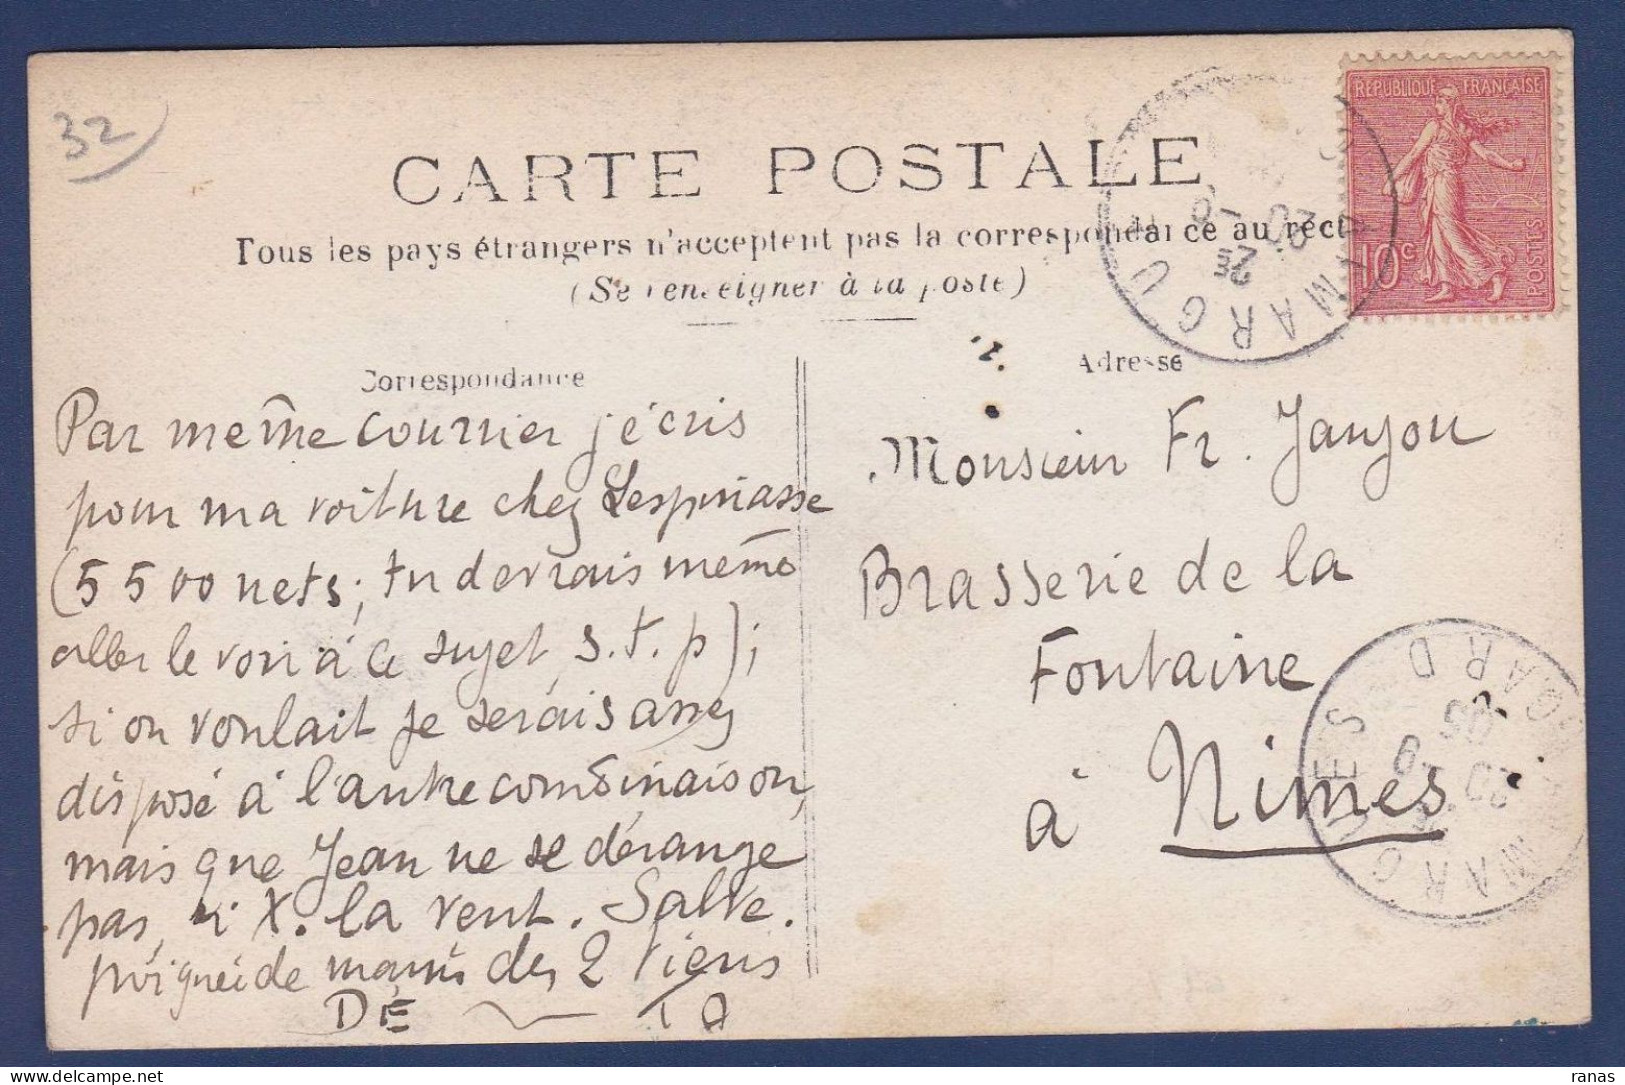 32
CARTE POSTALE
Tous les pays étrangers n'acceptent pas la correspondance au recto
(Se renseigner à la poste)
Correspondance
Par même courrier j'écris
pour ma voiture chez Lespinasse
(5500 nets; tu devrais même
aller le voir à ce sujet s.t.p);
si on voulait je serais assez
disposé à l'autre combinaison,
mais que Jean ne se dérange
pas, si X. la vent. Salve.
poignée de mains des 2 tiens
DÉ ~ TA
REPUBLIQUE FRANÇAISE
10c
POSTES
MARGU
2E
20 -9
Adresse
Monsieur Fr. Janjou
Brasserie de la
Fontaine
à Nimes
GARD
MARG
20 -9
05
ranas